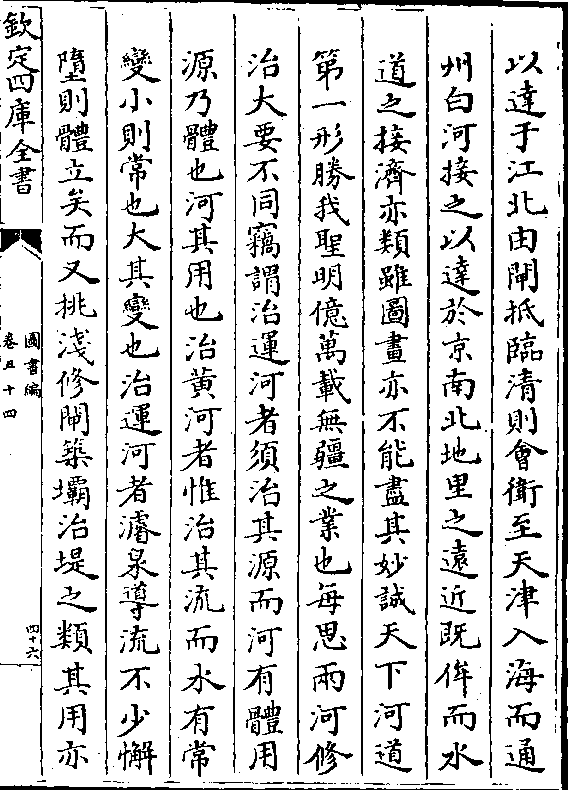 以達于江北由閘抵臨清則會衛至天津入海而通
州白河接之以達於京南北地里之遠近既侔而水
道之接濟亦類雖圖畫亦不能盡其妙誠天下河道
第一形勝我聖明億萬載無疆之業也每思兩河修
治大要不同竊謂治運河者須治其源而河有體用
源乃體也河其用也治黄河者惟治其流而水有常
變小則常也大其變也治運河者濬泉導流不少懈
墮則體立矣而又挑淺修閘築壩治堤之類其用亦
欽定四庫全書
圖書編
卷五十四
四十六